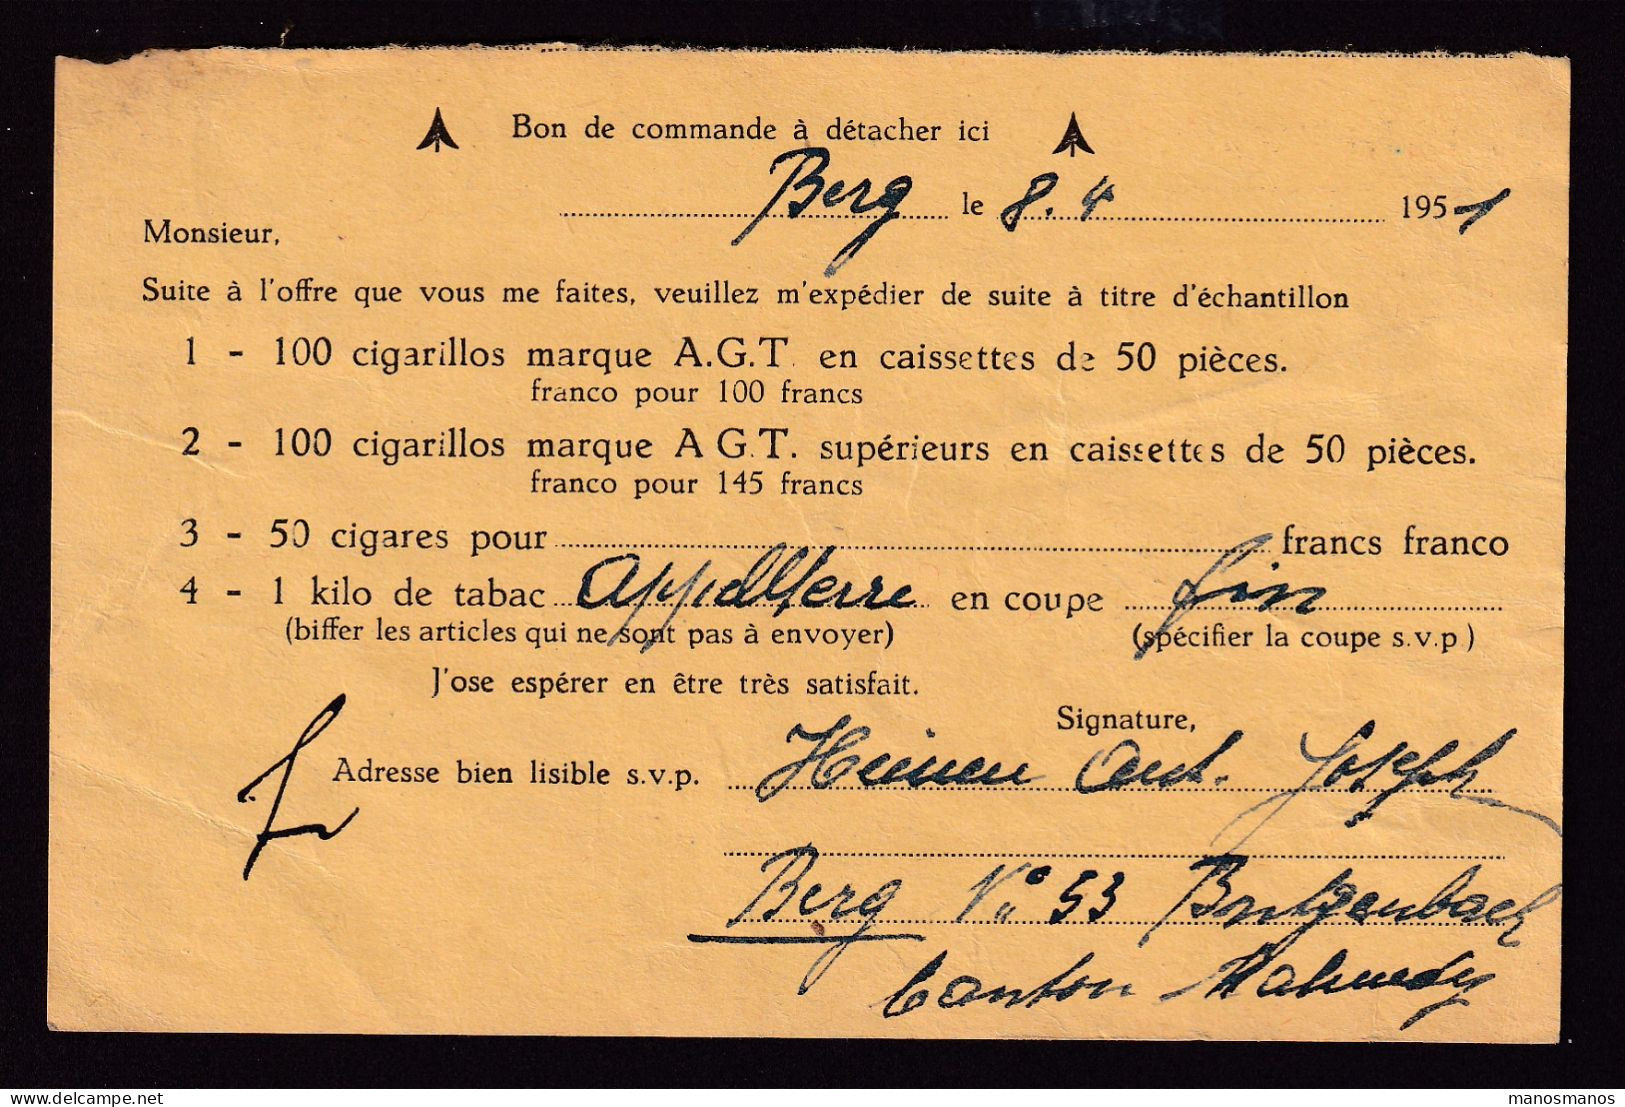 Bon de commande à détacher ici
Berg le 8.4 1951
Monsieur,
Suite à l'offre que vous me faites, veuillez m'expédier de suite à titre d'échantillon
1 - 100 cigarillos marque A.G.T. en caissettes de 50 pièces.
franco pour 100 francs
2 - 100 cigarillos marque A G.T. supérieurs en caissettes de 50 pièces.
franco pour 145 francs
3 - 50 cigares pour francs franco
4 - 1 kilo de tabac Appelterre en coupe fin
(biffer les articles qui ne sont pas à envoyer) (spécifier la coupe s.v.p)
J'ose espérer en être très satisfait.
Signature,
Adresse bien lisible s.v.p. Heinen Ant. Joseph
Berg No 53 Bütgenbach
Canton Malmedy
manosmanos